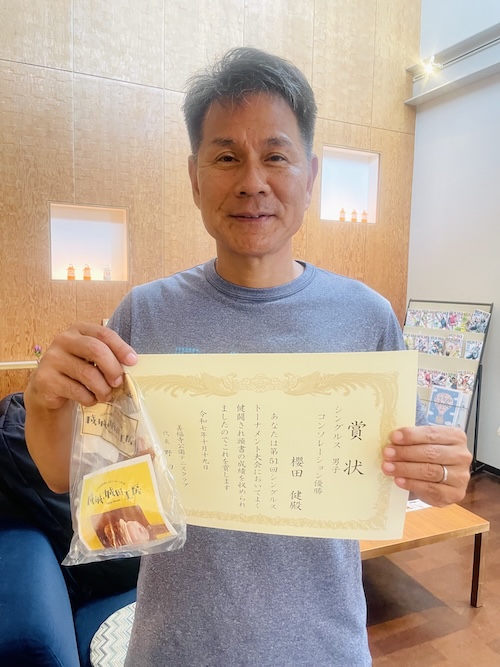 賞状
シングルス 男子
コンソレーション優勝
櫻田 健殿
あなたは第51回シングルス
トーナメント大会においてよく
健闘され頭書の成績を収められ
ましたのでこれを賞します
令和七年十月十九日
成城凮月堂